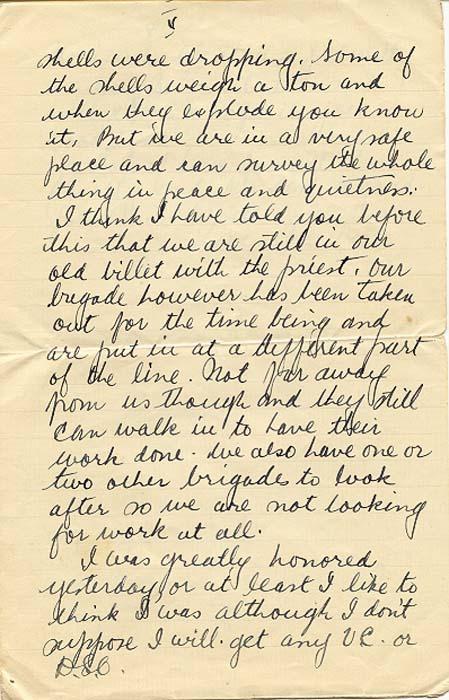 V
shells were dropping. Some of
the shells weigh a ton and
when they explode you know
it. But we are in a very safe
place and can survey the whole
thing in peace and quietness.
I think I have told you before
this that we are still in our
old billet with the priest. Our
brigade however has been taken
out for the time being and
are put in at a different part
of the line. Not far away
from us though and they still
can walk in to have their
work done. We also have one or
two other brigades to look
after so we are not looking
for work at all.
I was greatly honored
yesterday or at least I like to
think I was although I don't
suppose I will get any V.C. or
D.S.O.